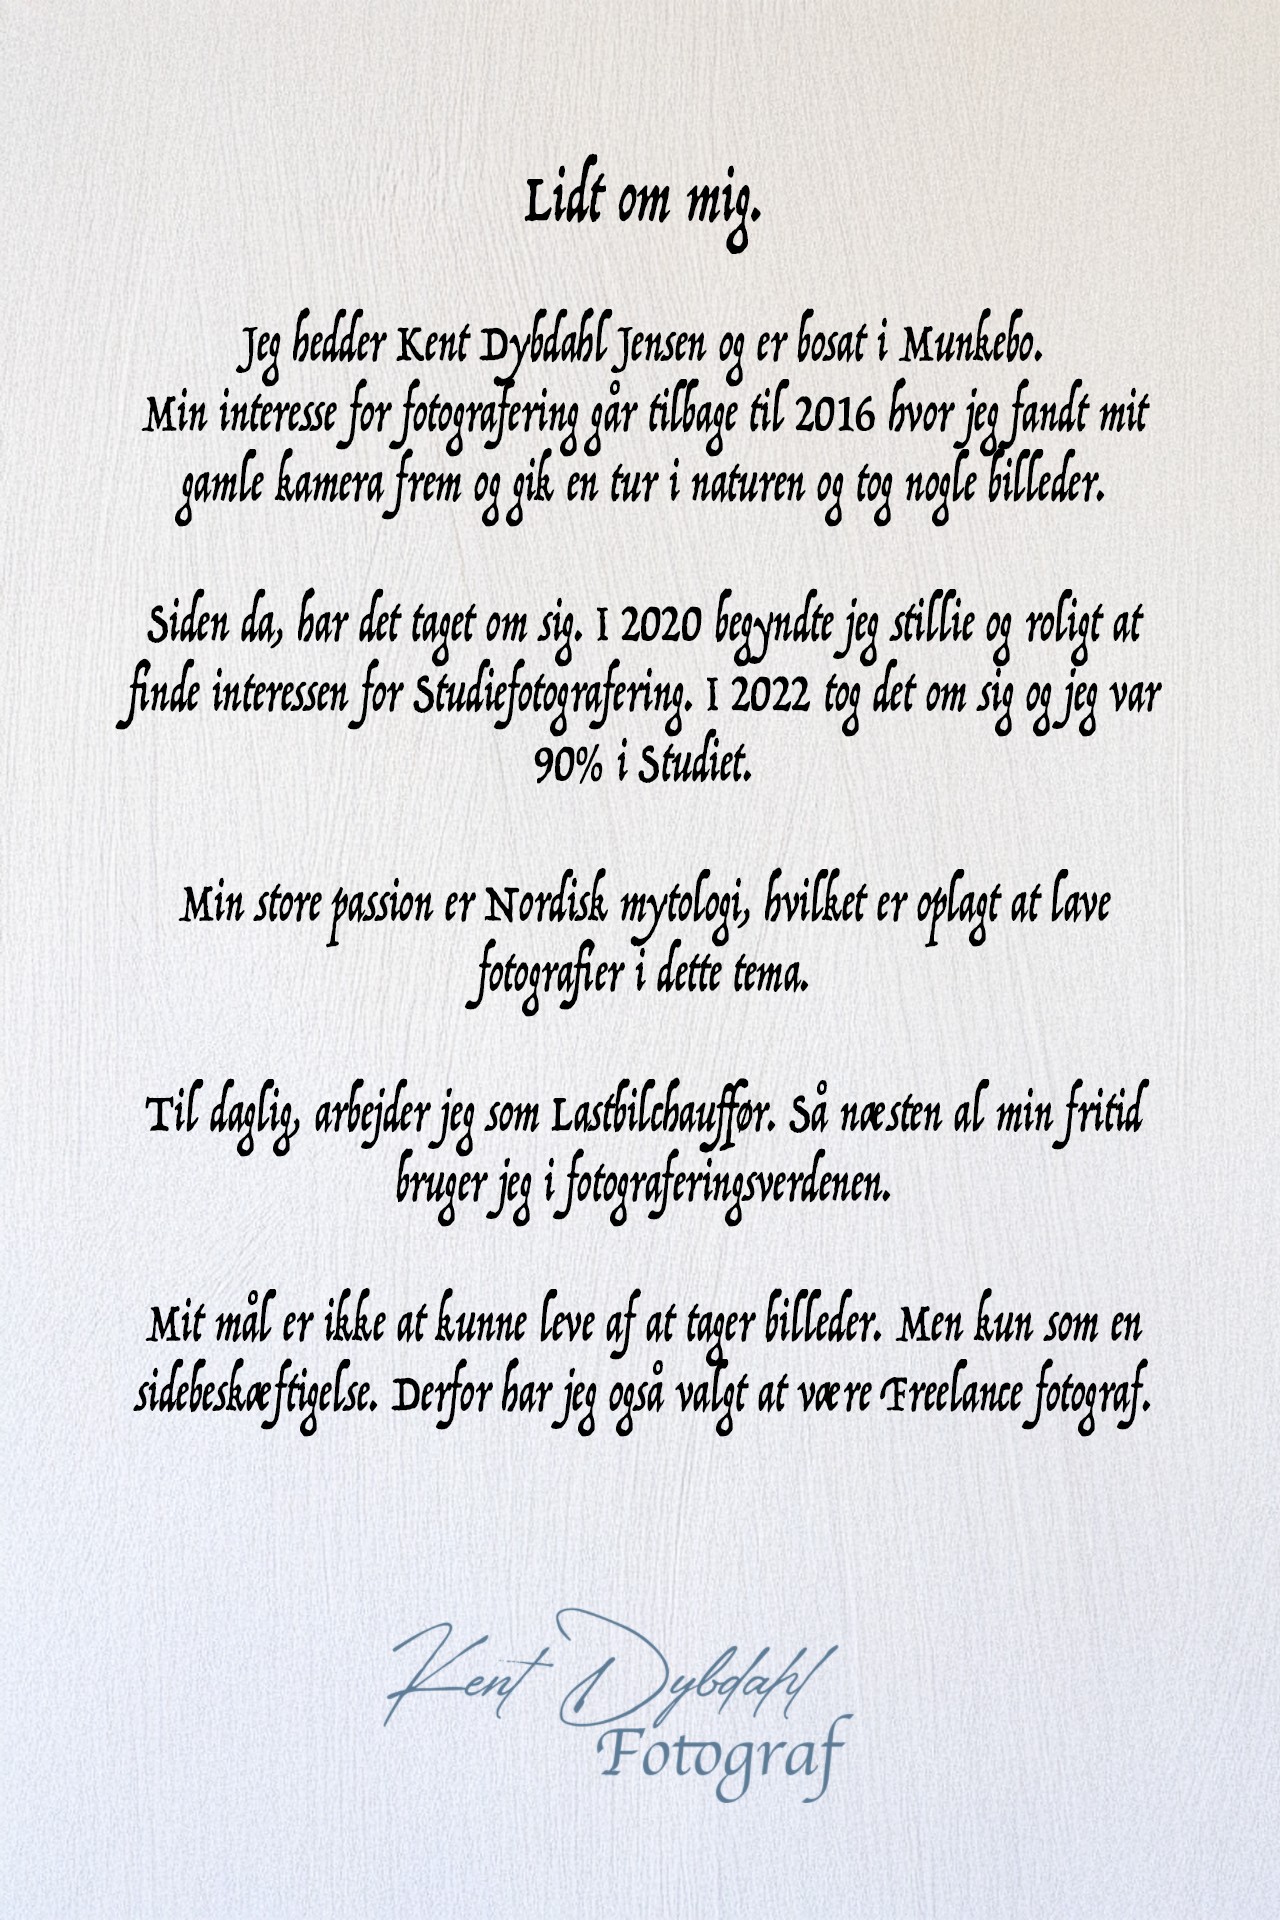 Lidt om mig.
Jeg hedder Kent Dybdahl Jensen og er bosat i Munkebo.
Min interesse for fotografering går tilbage til 2016 hvor jeg fandt mit
gamle kamera frem og gik en tur i naturen og tog nogle billeder.
Siden da, har det taget om sig. I 2020 begyndte jeg stillie og roligt at
finde interessen for Studiefotografering. I 2022 tog det om sig og jeg var
90% i Studiet.
Min store passion er Nordisk mytologi, hvilket er oplagt at lave
fotografier i dette tema.
Til daglig, arbejder jeg som Lastbilchauffør. Så næsten al min fritid
bruger jeg i fotograferingsverdenen.
Mit mål er ikke at kunne leve af at tager billeder. Men kun som en
sidebeskæftigelse. Derfor har jeg også valgt at være Freelance fotograf.
Kent Dybdahl
Fotograf